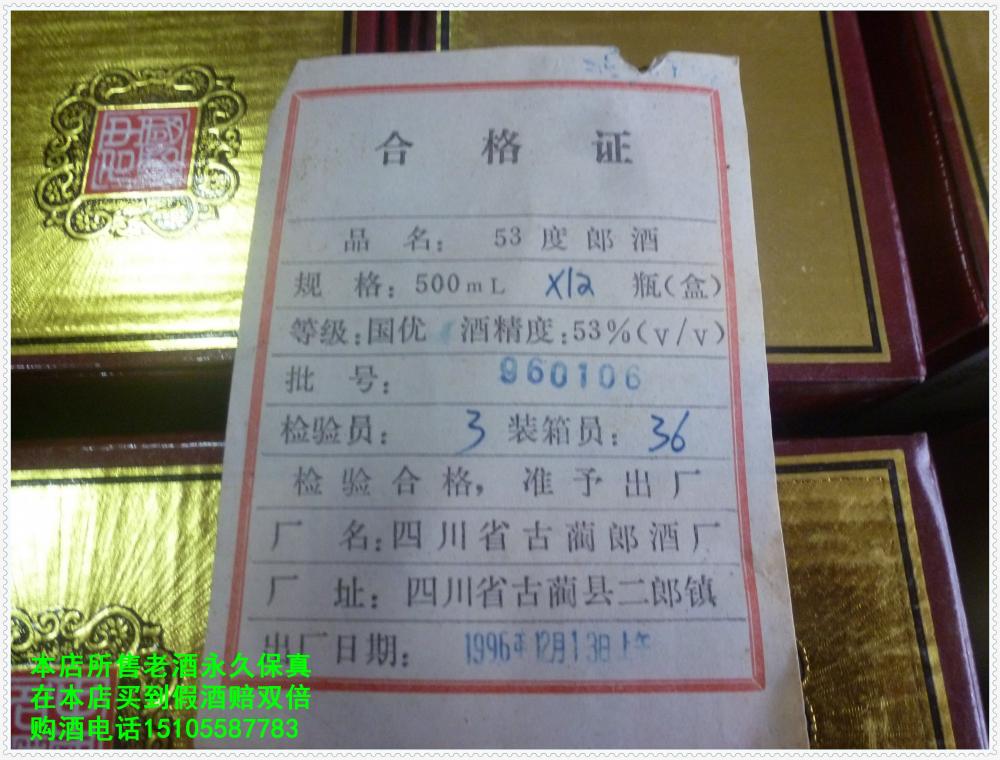 合格证
品名：53度郎酒
规格：500mL X12 瓶(盒)
等级：国优 酒精度：53%(v/v)
批号：960106
检验员：3 装箱员：36
检验合格，准予出厂
厂名：四川省古蔺郎酒厂
厂址：四川省古蔺县二郎镇
出厂日期：1996年12月13日上午
本店所售老酒永久保真
在本店买到假酒赔双倍
购酒电话15105587783